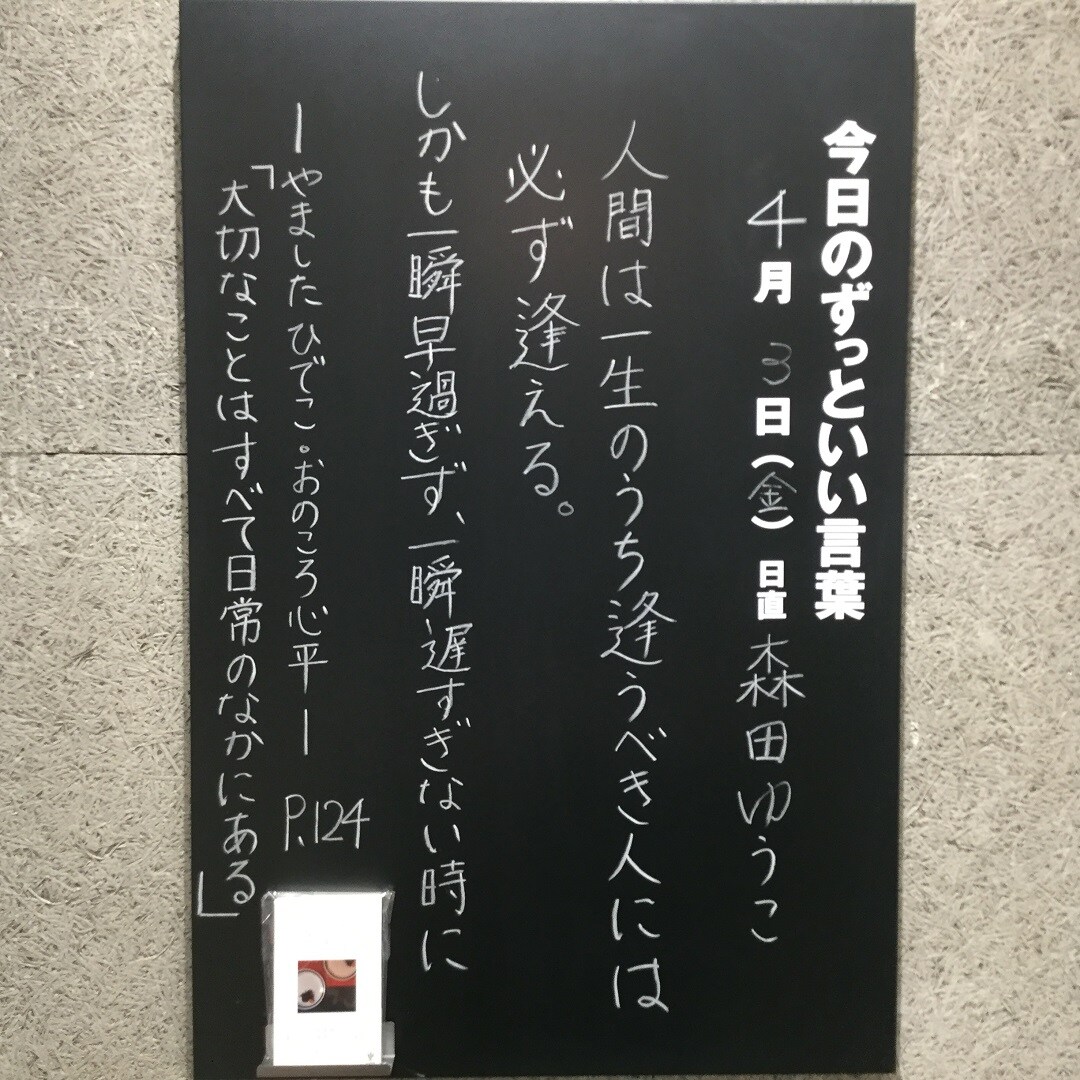 今日のずっといい言葉
4月3日(金) 日直 森田ゆうこ
人間は一生のうち逢うべき人には
必ず逢える。
しかも一瞬早過ぎず、一瞬遅すぎない時に
ーやましたひでこ。おのころ心平ー P.124
「大切なことはすべて日常のなかにある」